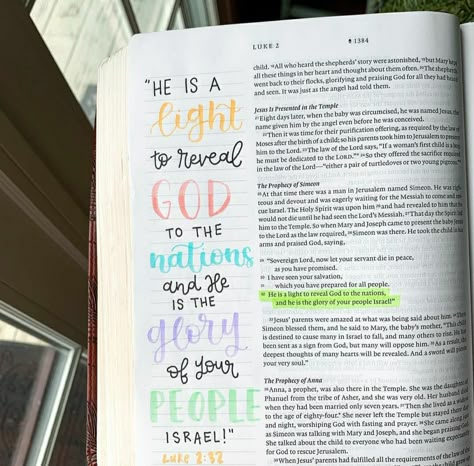 LUKE 2
1384
"HE IS A
light
to reveal
GOD
TO THE
nations
and He
IS THE
glory
of your
PEOPLE
ISRAEL!"
Luke 2:32
child. 18All who heard the shepherds' story were astonished, 19but Mary kept
all these things in her heart and thought about them often. 20The shepherds
went back to their flocks, glorifying and praising God for all they had heard
and seen. It was just as the angel had told them.
Jesus Is Presented in the Temple
21Eight days later, when the baby was circumcised, he was named Jesus, the
name given him by the angel even before he was conceived.
22Then it was time for their purification offering, as required by the law of
Moses after the birth of a child; so his parents took him to Jerusalem to present
him to the Lord. 23The law of the Lord says, "If a woman's first child is a boy,
he must be dedicated to the LORD." 24So they offered the sacrifice required
in the law of the Lord—"either a pair of turtledoves or two young pigeons."
The Prophecy of Simeon
25At that time there was a man in Jerusalem named Simeon. He was righ-
teous and devout and was eagerly waiting for the Messiah to come and res-
cue Israel. The Holy Spirit was upon him 26and had revealed to him that he
would not die until he had seen the Lord's Messiah. 27That day the Spirit led
him to the Temple. So when Mary and Joseph came to present the baby Jesus
to the Lord as the law required, 28Simeon was there. He took the child in his
arms and praised God, saying,
29 "Sovereign Lord, now let your servant die in peace,
as you have promised.
30 I have seen your salvation,
31 which you have prepared for all people.
32 He is a light to reveal God to the nations,
and he is the glory of your people Israel!"
33Jesus' parents were amazed at what was being said about him. 34Then
Simeon blessed them, and he said to Mary, the baby's mother, "This child
is destined to cause many in Israel to fall, and many others to rise. He has
been sent as a sign from God, but many will oppose him. 35As a result, the
deepest thoughts of many hearts will be revealed. And a sword will pierce
your very soul."
The Prophecy of Anna
36Anna, a prophet, was also there in the Temple. She was the daughter of
Phanuel from the tribe of Asher, and she was very old. Her husband died
when they had been married only seven years. 37Then she lived as a widow
to the age of eighty-four. She never left the Temple but stayed there day
and night, worshiping God with fasting and prayer. 38She came along just
as Simeon was talking with Mary and Joseph, and she began praising God.
She talked about the child to everyone who had been waiting expectantly
for God to rescue Jerusalem.
39When Jesus' parents had fulfilled all the requirements of the law of the